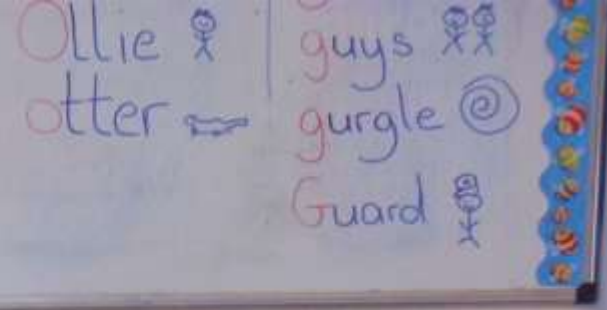 Ollie
otter
guys
gurgle
Guard